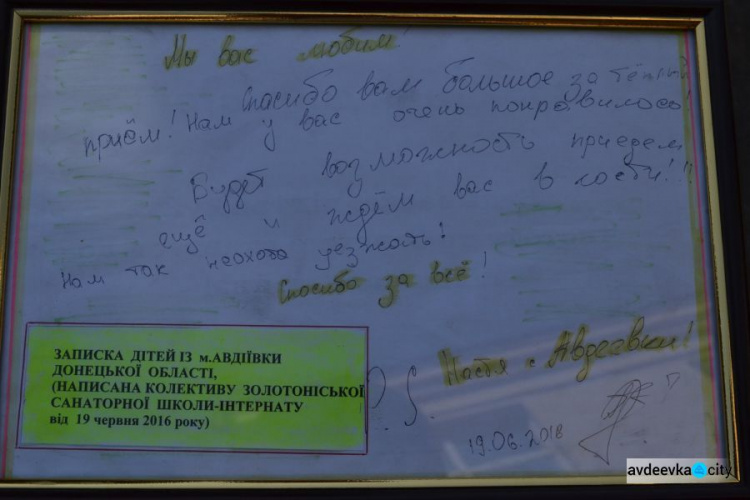 Мы вас любим!
Спасибо вам большое за тёплый
приём! Нам у вас очень понравилось!
Будет возможность приедем
ещё и ждём вас в гости!!!
Нам так неохота уезжать!
Спасибо за всё!
P.S. Настя с Авдеевки!
19.06.2018
ЗАПИСКА ДІТЕЙ ІЗ м.АВДІЇВКИ
ДОНЕЦЬКОЇ ОБЛАСТІ,
(НАПИСАНА КОЛЕКТИВУ ЗОЛОТОНІСЬКОЇ
САНАТОРНОЇ ШКОЛИ-ІНТЕРНАТУ
від 19 червня 2016 року)
avdeevka city